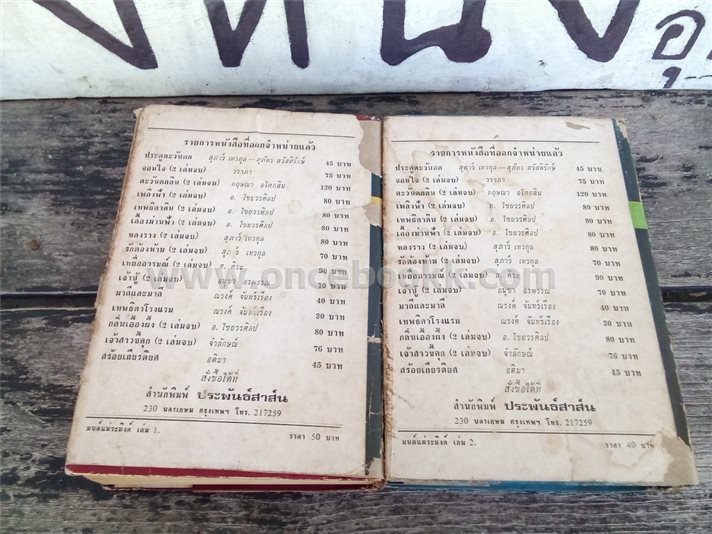 รายการหนังสือที่ออกจำหน่ายแล้ว
ประตูตะวันตก สุภาว์ เทวกุล — สุภัทร สวัสดิรักษ์ 45 บาท
จอมใจ (2 เล่มจบ) วราภา 75 บาท
ตะวันตกดิน (2 เล่มจบ) กฤษณา อโศกสิน 120 บาท
เพลิงฟ้า (2 เล่มจบ) อ. ไชยวรศิลป 80 บาท
เทพธิดาดิน (2 เล่มจบ) อ. ไชยวรศิลป 80 บาท
เอื้องม่านฟ้า (2 เล่มจบ) อ. ไชยวรศิลป 80 บาท
หลงราง (2 เล่มจบ) สุภาว์ เทวกุล 80 บาท
รักต้องห้าม (2 เล่มจบ) สุภาว์ เทวกุล 70 บาท
เหยื่ออารมณ์ (2 เล่มจบ) 90 บาท
เจ้าบู๊ (2 เล่มจบ) อนุชา อรพรรณ 70 บาท
มาลีและมาลี ณรงค์ จันทร์เรือง 40 บาท
เทพธิดาโรงแรม ณรงค์ จันทร์เรือง 30 บาท
กลิ่นเอื้องผึ้ง (2 เล่มจบ) อ. ไชยวรศิลป 80 บาท
เจ้าสาวบีตุก (2 เล่มจบ) จำลักษณ์ 76 บาท
สร้อยเสียรติยศ อติมา 45 บาท
สั่งซื้อได้ที่
สำนักพิมพ์ ประพันธ์สาส์น
230 นครเกษม กรุงเทพฯ โทร. 217259
มนต์แม่ระมิงค์ เล่ม 1. ราคา 50 บาท
รายการหนังสือที่ออกจำหน่ายแล้ว
ประตูตะวันตก สุภาว์ เทวกุล — สุภัทร สวัสดิรักษ์ 45 บาท
จอมใจ (2 เล่มจบ) วราภา 75 บาท
ตะวันตกดิน (2 เล่มจบ) กฤษณา อโศกสิน 120 บาท
เพลิงฟ้า (2 เล่มจบ) อ. ไชยวรศิลป 80 บาท
เทพธิดาดิน (2 เล่มจบ) อ. ไชยวรศิลป 80 บาท
เอื้องม่านฟ้า (2 เล่มจบ) อ. ไชยวรศิลป 80 บาท
หลงราง (2 เล่มจบ) สุภาว์ เทวกุล 80 บาท
รักต้องห้าม (2 เล่มจบ) สุภาว์ เทวกุล 70 บาท
เหยื่ออารมณ์ (2 เล่มจบ) 90 บาท
เจ้าบู๊ (2 เล่มจบ) อนุชา อรพรรณ 70 บาท
มาลีและมาลี ณรงค์ จันทร์เรือง 40 บาท
เทพธิดาโรงแรม ณรงค์ จันทร์เรือง 30 บาท
กลิ่นเอื้องผึ้ง (2 เล่มจบ) อ. ไชยวรศิลป 80 บาท
เจ้าสาวบีตุก (2 เล่มจบ) จำลักษณ์ 76 บาท
สร้อยเสียรติยศ อติมา 45 บาท
สั่งซื้อได้ที่
สำนักพิมพ์ ประพันธ์สาส์น
230 นครเกษม กรุงเทพฯ โทร. 217259
มนต์แม่ระมิงค์ เล่ม 2. ราคา 40 บาท